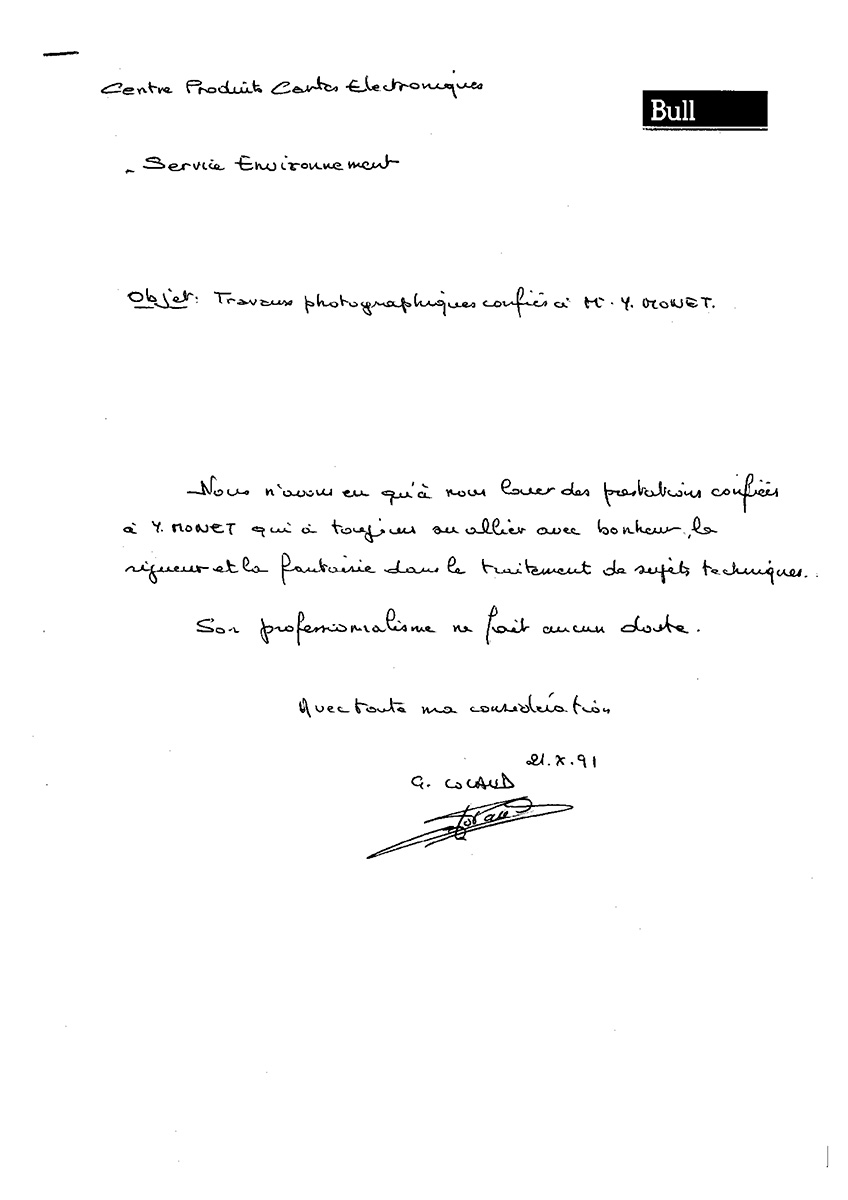 Centre Produits Cartes Electroniques
Bull
- Service Environnement
Objet: Travaux photographiques confiés à M. Y. MONET.
Nous n'avons eu qu'à nous louer des prestations confiées
à Y. MONET qui à toujours su allier avec bonheur, la
rigueur et la fantaisie dans le traitement de sujets techniques.
Son professionnalisme ne fait aucun doute.
Avec toute ma considération
21.X.91
G. COCAUD